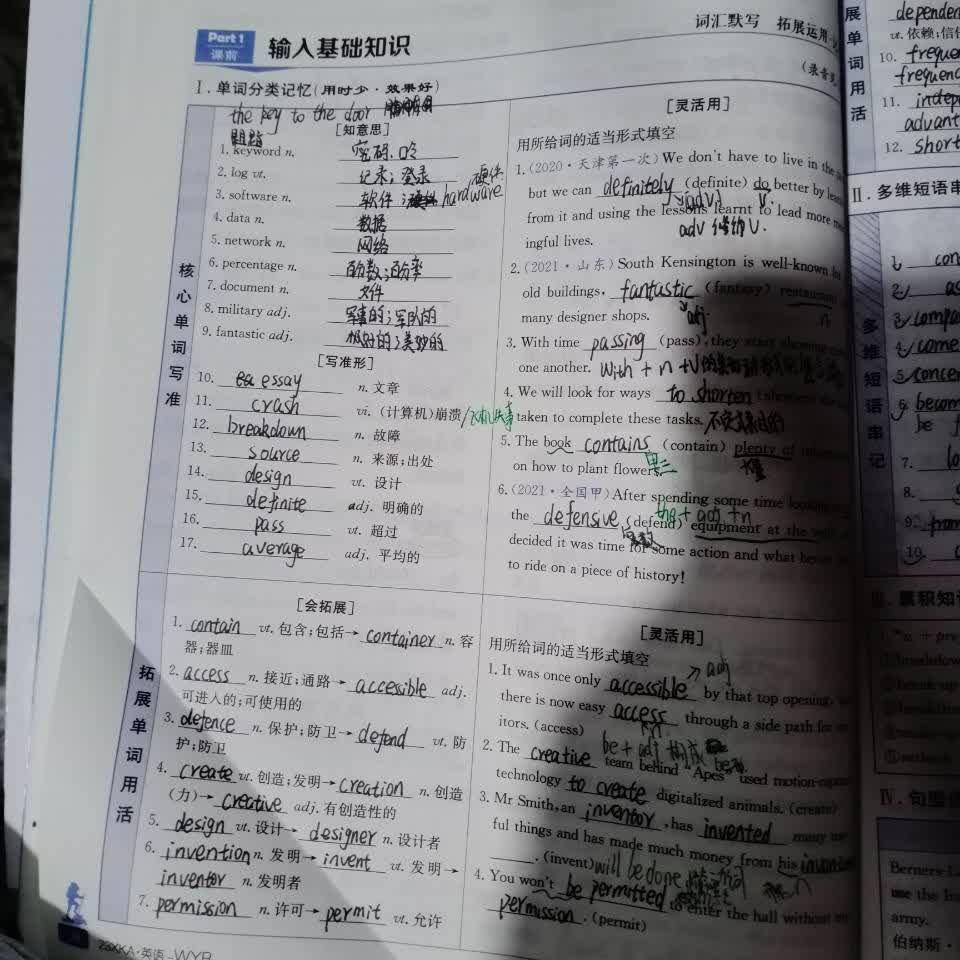 Part 1
课前
输入基础知识
词汇默写 拓展运用
Ⅰ.单词分类记忆(用时少·效果好)
the key to the door
[知意思]
1. keyword n. 密码、口令
2. log vt. 记录;登录
3. software n. 软件; 硬件 hardware
4. data n. 数据
5. network n. 网络
6. percentage n. 百分数;百分率
7. document n. 文件
8. military adj. 军事的;军队的
9. fantastic adj. 极好的;美妙的
核心单词写准
[写准形]
10. essay n. 文章
11. crash vi. (计算机)崩溃/飞机失事
12. breakdown n. 故障
13. source n. 来源;出处
14. design vt. 设计
15. definite adj. 明确的
16. pass vt. 超过
17. average adj. 平均的
[灵活用]
用所给词的适当形式填空
1.(2020·天津第一次)We don't have to live in the
but we can definitely (definite) do better by
adv. v.
from it and using the lessons learnt to lead more
adv 修饰 v.
ingful lives.
2.(2021·山东)South Kensington is well-known
old buildings, fantastic (fantasy)
adj. n
many designer shops.
3. With time passing (pass), they start
one another. with + n +
4. We will look for ways to shorten
taken to complete these tasks.
5. The book contains (contain) plenty of
on how to plant flowers.
6.(2021·全国甲)After spending some time
the + adj + n
the defensive (defend) equipment at the
decided it was time for some action and what
to ride on a piece of history!
拓展单词用活
[会拓展]
1. contain vt. 包含;包括→ container n. 容
器;器皿
2. access n. 接近;通路→ accessible adj.
可进入的;可使用的
3. defence n. 保护;防卫→ defend vt. 防
护;防卫
4. create vt. 创造;发明→ creation n. 创造
(力)→ creative adj. 有创造性的
5. design vt. 设计→ designer n. 设计者
6. invention n. 发明→ invent vt. 发明→
inventor n. 发明者
7. permission n. 许可→ permit vt. 允许
[灵活用]
用所给词的适当形式填空
adj
1. It was once only accessible by that top opening,
there is now easy access through a side path for
itors. (access) n.
be + adj 构成
2. The creative team behind "Apes" used motion-
technology to create digitalized animals. (create)
3. Mr Smith, an inventor, has invented many
ful things and has made much money from his
. (invent) will be done
4. You won't be permitted to enter the hall without
permission. (permit)
23XKA·英语
dependen
vt. 依赖;信任
10. freque
frequenc
11. indep
advant
12. short
展单词用活
Ⅱ.多维短语串
多维短语串记
1. con
2. as
3. compa
4. come
5. concer
6. becom
be f
7.
8.
9. from
10.
Ⅲ.累积知
Ⅳ.句型
Berners-L
use the
army.
伯纳斯·